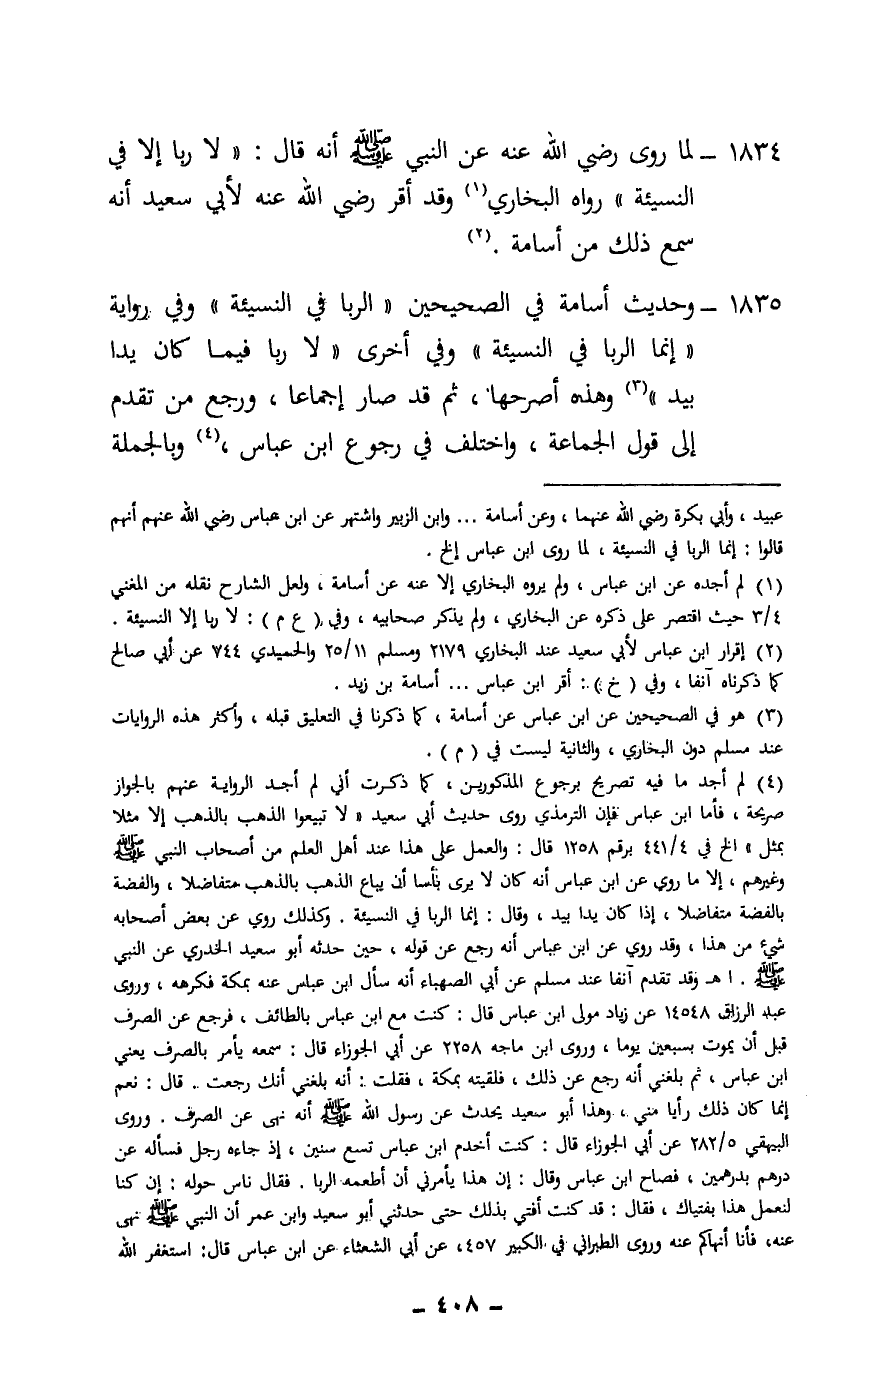 ١٨٣٤ ــ لما روى رضي الله عنه عن النبي ﷺ أنه قال : « لا ربا إلا في
النسيئة » رواه البخاري(١) وقد أقر رضي الله عنه لأبي سعيد أنه
سمع ذلك من أسامة .(٢)
١٨٣٥ ــ وحديث أسامة في الصحيحين « الربا في النسيئة » وفي رواية
« إنما الربا في النسيئة » وفي أخرى « لا ربا فيما كان يدا
بيد »(٣) وهذه أصرحها ، ثم قد صار إجماعا ، ورجع من تقدم
إلى قول الجماعة ، واختلف في رجوع ابن عباس ،(٤) وبالجملة
عبيد ، وأبي بكرة رضي الله عنهما ، وعن أسامة ... وابن الزبير واشتهر عن ابن عباس رضي الله عنهم أنهم
قالوا : إنما الربا في النسيئة ، لما روى ابن عباس إلخ .
(١) لم أجده عن ابن عباس ، ولم يروه البخاري إلا عنه عن أسامة ، ولعل الشارح نقله من المغني
٣/٤ حيث اقتصر على ذكره عن البخاري ، ولم يذكر صحابيه ، وفي ( ع م ) : لا ربا إلا النسيئة .
(٢) إقرار ابن عباس لأبي سعيد عند البخاري ٢١٧٩ ومسلم ٢٥/١١ والحميدي ٧٤٤ عن أبي صالح
كما ذكرناه آنفا ، وفي ( خ ) : أقر ابن عباس ... أسامة بن زيد .
(٣) هو في الصحيحين عن ابن عباس عن أسامة ، كما ذكرنا في التعليق قبله ، وأكثر هذه الروايات
عند مسلم دون البخاري ، والثانية ليست في ( م ) .
(٤) لم أجد ما فيه تصريح برجوع المذكورين ، كما ذكرت أني لم أجد الرواية عنهم بالجواز
صريحة ، فأما ابن عباس فإن الترمذي روى حديث أبي سعيد « لا تبيعوا الذهب بالذهب إلا مثلا
بمثل » الخ في ٤٤١/٤ برقم ١٢٥٨ قال : والعمل على هذا عند أهل العلم من أصحاب النبي ﷺ
وغيرهم ، إلا ما روي عن ابن عباس أنه كان لا يرى بأسا أن يباع الذهب بالذهب متفاضلا ، والفضة
بالفضة متفاضلا ، إذا كان يدا بيد ، وقال : إنما الربا في النسيئة . وكذلك روي عن بعض أصحابه
شيء من هذا ، وقد روي عن ابن عباس أنه رجع عن قوله ، حين حدثه أبو سعيد الخدري عن النبي
ﷺ . ا هـ وقد تقدم آنفا عند مسلم عن أبي الصهباء أنه سأل ابن عباس عنه بمكة فكرهه ، وروى
عبد الرزاق ١٤٥٤٨ عن زياد مولى ابن عباس قال : كنت مع ابن عباس بالطائف ، فرجع عن الصرف
قبل أن يموت بسبعين يوما ، وروى ابن ماجه ٢٢٥٨ عن أبي الجوزاء قال : سمعه يأمر بالصرف يعني
ابن عباس ، ثم بلغني أنه رجع عن ذلك ، فلقيته بمكة ، فقلت : أنه بلغني أنك رجعت . قال : نعم
إنما كان ذلك رأيا مني ، وهذا أبو سعيد يحدث عن رسول الله ﷺ أنه نهى عن الصرف . وروى
البيهقي ٢٨٢/٥ عن أبي الجوزاء قال : كنت أخدم ابن عباس تسع سنين ، إذ جاءه رجل فسأله عن
درهم بدرهمين ، فصاح ابن عباس وقال : إن هذا يأمرني أن أطعمه الربا . فقال ناس حوله : إن كنا
لنعمل هذا بفتياك ، فقال : قد كنت أفتي بذلك حتى حدثني أبو سعيد وابن عمر أن النبي ﷺ نهى
عنه، فأنا أنهاكم عنه وروى الطبراني في الكبير ٤٥٧، عن أبي الشعثاء عن ابن عباس قال: استغفر الله
ــ ٤٠٨ ــ